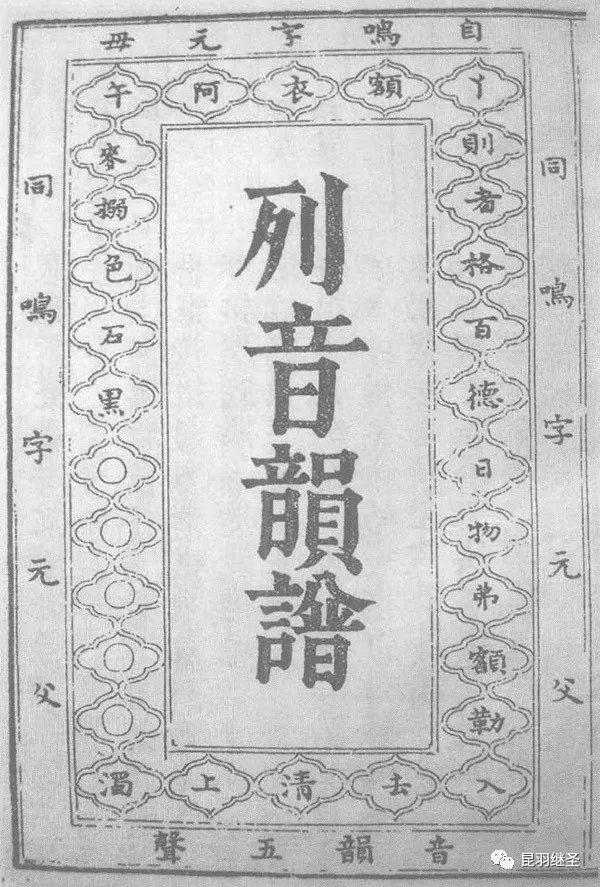 自鳴字元母
丫額衣阿午
同鳴字元父
則者格百德日物弗額勒
列音韻譜
麥搦色石黑○○○○○
同鳴字元父
入去清上濁
音韻五聲
昆羽继圣